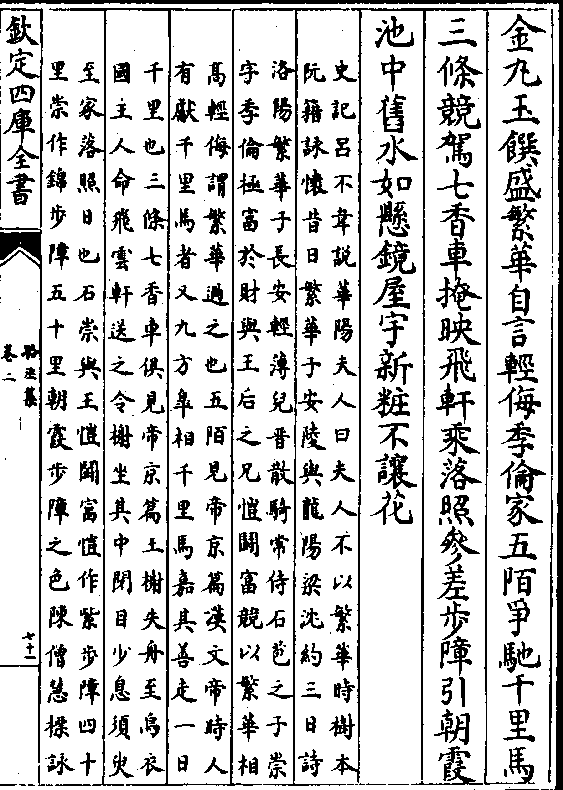 金丸玉饌盛繁華自言輕侮季倫家五陌爭馳千里馬
三條競駕七香車掩映飛軒乘落照參差步障引朝霞
池中舊水如懸鏡屋宇新粧不讓花
史記呂不韋說華陽夫人曰夫人不以繁華時樹本
阮籍詠懷昔日繁華子安陵與龍陽梁沈約三日詩
洛陽繁華子長安輕薄兒晉散騎常侍石苞之子崇
字季倫極富於財與王后之兄愷鬭富競以繁華相
髙輕侮謂繁華過之也五陌見帝京篇漢文帝時人
有獻千里馬者又九方臯相千里馬嘉其善走一日
千里也三條七香車俱見帝京篇王榭失舟至烏衣
國主人命飛雲軒送之令榭坐其中閉目少息須臾
至家落照日也石崇與王愷鬭富愷作紫步障四十
里崇作錦步障五十里朝霞步障之色陳僧慧檦詠
欽定四庫全書
卷二
七十一